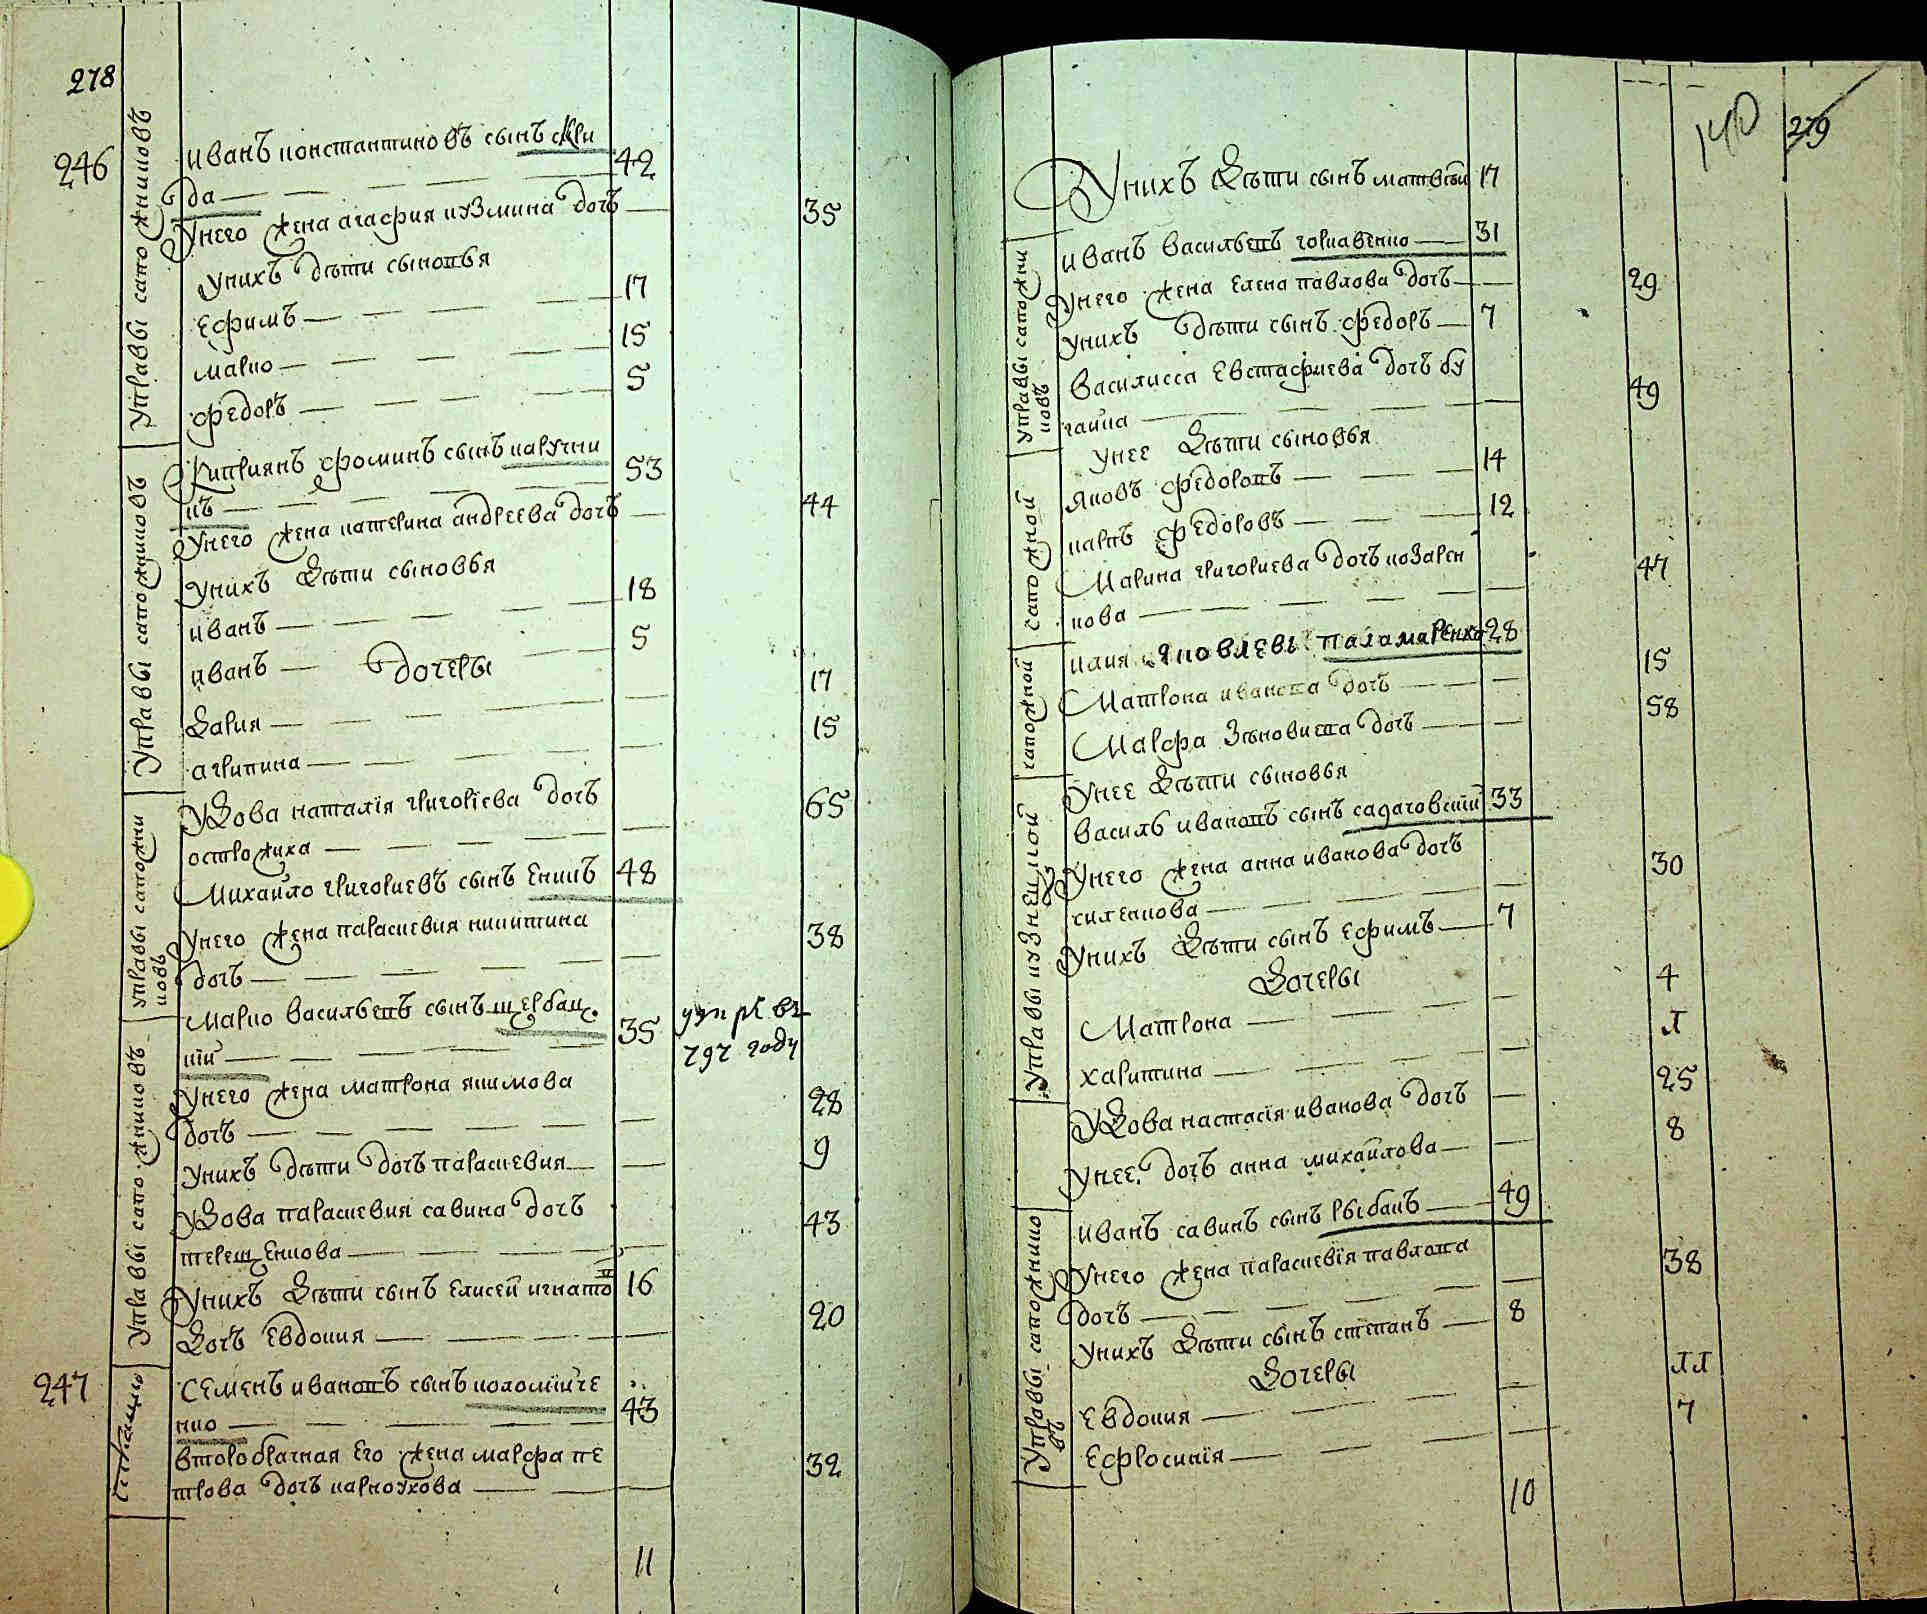 278
246
Управы сапожниковъ
иванъ константиновъ сынъ скри
да 42
унего жена агафия кузмина дочь 35
унихъ дѣти сыновья
ефимъ 17
марко 15
федоръ 5
Управы сапожниковъ
киприянъ фоминъ сынъ каручни
къ 53
унего жена катерина андреева дочь 44
унихъ дѣти сыновья
иванъ 18
иванъ 5
дочеры
дария 17
агрипина 15
управы сапожни
ковъ
удова наталія григоріева дочь 65
острожиха
михайло григориевъ сынъ 48
унего жена параскевия никитина 38
дочь
Управы сапожниковъ
марко васильевъ сынъ щербац
кій 35
791 году
унего жена матрона якимова
дочь 28
унихъ дѣти дочь параскевия 9
удова параскевия савина дочь 43
терещенкова
унихъ дѣти сынъ елисей игнатов 16
дочь евдокия 20
247
семенъ ивановъ сынъ коломійче
нко 43
второбрачная его жена марфа пе 32
трова дочь карноухова
11
140
279
унихъ дѣти сынъ матвѣй 17
управы сапожни
ковъ
иванъ васильевъ горкавенко 31
унего жена елена павлова дочь 29
унихъ дѣти сынъ федоръ 7
василисса евстафиева дочь бу
гайка 49
унее дѣти сыновья
сапожной
яковъ федоровъ 14
карпъ федоровъ 12
марина григориева дочь козарен
кова 47
сапожной
паламаренко 28
матрона иванова дочь 15
марфа зѣновиева дочь 58
унее дѣти сыновья
Управы кузнецкой
василь ивановъ сынъ садаговскій 33
унего жена анна иванова дочь 30
силенкова
унихъ дѣти сынъ ефимъ 7
дочеры
матрона 4
харитина 1
удова настасія иванова дочь 25
унее дочь анна михайлова 8
Управы сапожнико
въ
иванъ савинъ сынъ рыбакъ 49
унего жена параскевія павлова 38
дочь
унихъ дѣти сынъ степанъ 8
дочеры
евдокия 11
ефросинія 7
10